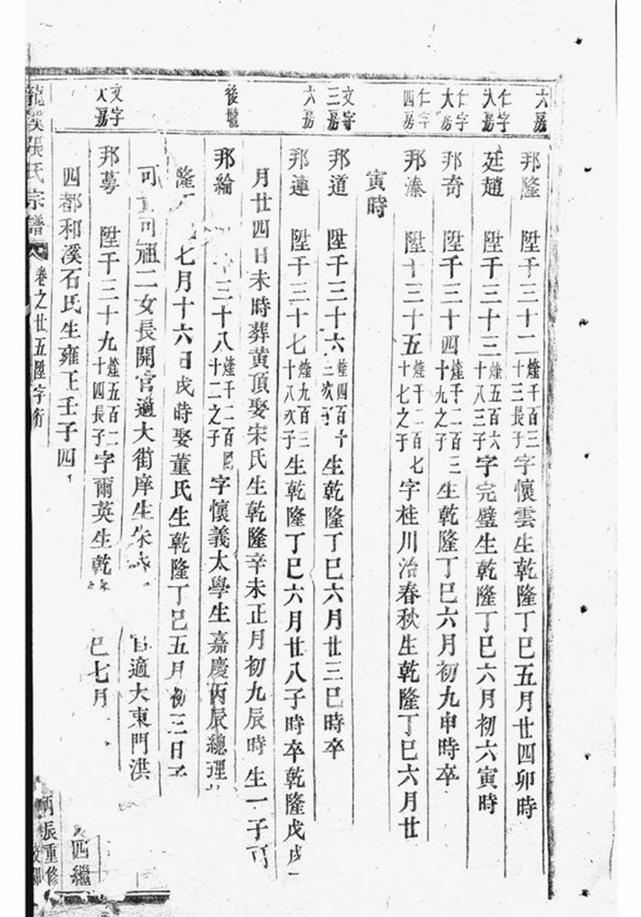 六房
邦隆 陞千三十二 燵千百三十三長子 字懷雲生乾隆丁巳五月廿四卯時
仁字大房
廷趙 陞千三十三 燵五百六十八三子 字完璧生乾隆丁巳六月初六寅時
仁字大房
邦奇 陞千三十四 燵千二百三十九之子 生乾隆丁巳六月初九申時卒
仁字四房
邦溱 陞千三十五 燵千二百七十七之子 字桂川治春秋生乾隆丁巳六月廿
寅時
文字三房
邦道 陞千三十六 燵四百十 次子 生乾隆丁巳六月廿三巳時卒
六房
邦連 陞千三十七 燵九百三十八次子 生乾隆丁巳六月廿八子時卒乾隆戊戌
月廿四日未時葬黃頂娶宋氏生乾隆辛未正月初九辰時生一子可
後壠
邦綸 三十八 燵千二百 十二之子 字懷義太學生嘉慶丙辰總理
隆 七月十六日戌時娶董氏生乾隆丁巳五月初三日子
可 可祖二女長開官適大街庠生朱 官適大東門洪
文字大房
邦 陞千三十九 燵五百二十四長子 字爾英生乾 巳七月
四都和溪石氏生雍正壬子四
龍溪張氏宗譜 卷之廿五陞字行
四繼
丙辰重修